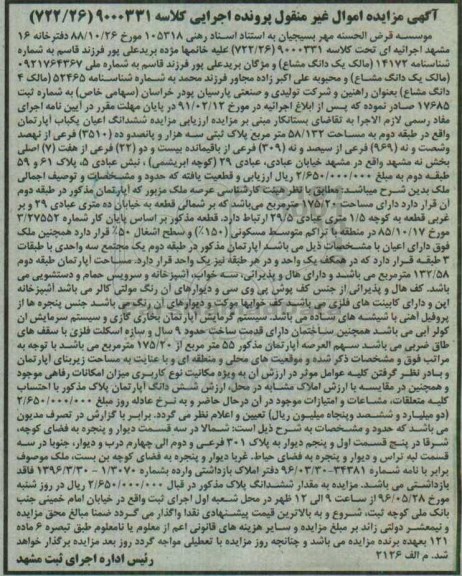 آگهی مزایده اموال غیر منقول پرونده اجرایی کلاسه ۹۰۰۰۳۳۱ (۷۲۲/۲۶)
موسسه قرض الحسنه مهر بسیجیان به استناد اسناد رهنی ۱۰۵۳۱۸ مورخ ۸۸/۱۰/۲۶ دفترخانه ۱۶
مشهد اجرائیه ای تحت کلاسه ۹۰۰۰۳۳۱ (۷۲۲/۲۶) علیه خانمها مژده یزیدعلی پور فرزند قاسم به شماره
شناسنامه ۱۴۱۷۲ (مالک یک دانگ مشاع) و مژگان یزیدعلی پور فرزند قاسم به شماره ملی ۰۹۲۱۷۶۴۳۶۷
(مالک یک دانگ مشاع) و محبوبه علی اکبر زاده مجاور فرزند محمد به شماره شناسنامه ۵۲۴۶۵ (مالک ۴
دانگ مشاع) بعنوان راهنین و شرکت تولیدی و صنعتی پارسیان پودر خراسان (سهامی خاص) به شماره ثبت
۱۷۶۸۵ صادر نموده که پس از ابلاغ اجرائیه در مورخ ۹۱/۰۲/۱۲ در پایان مهلت مقرر در آیین نامه اجرای
مفاد رسمی لازم الاجرا به تقاضای بستانکار مبنی بر مزایده ارزیابی مزایده ششدانگ اعیان یکباب آپارتمان
واقع در طبقه دوم به مساحت ۵۸/۱۳۲ متر مربع پلاک ثبتی سه هزار و پانصدو ده (۳۵۱۰) فرعی از نهصد
وشصت و نه (۹۶۹) فرعی از سیصد و نه (۳۰۹) فرعی از باقیمانده بیست و دو (۲۲) فرعی از هفت (۷) اصلی
بخش نه مشهد واقع در مشهد خیابان عبادی، عبادی ۲۹ (کوچه ابریشمی)، نبش عبادی ۵، پلاک ۶۱ و ۵۹
طبقه دوم به مبلغ ۲/۶۵۰/۰۰۰/۰۰۰ ریال ارزیابی و قطعیت یافته که حدود و مشخصات و توصیف اجمالی
ملک بدین شرح میباشد: مطابق با نظر هیئت کارشناسی عرصه ملک مزبور که آپارتمان مذکور در طبقه دوم
آن قرار دارد دارای مساحت ۱۷۵/۲۰ مترمربع می‌باشد که بر شمالی قطعه به خیابان ده متری عبادی ۲۹ و بر
غربی قطعه به کوچه ۱/۵ متری عبادی ۲۹/۵ ارتباط دارد. قطعه مذکور بر اساس پایان کار شماره ۳/۲۷۵۵۲
مورخ ۸۵/۱۰/۱۷ در منطقه با تراکم متوسط مسکونی (۱۵۰٪) و سطح اشغال ۵۰٪ قرار دارد همچنین ملک
فوق دارای اعیان با مشخصات ذیل می باشد: آپارتمان مذکور در طبقه دوم یک مجتمع سه واحدی با طبقات
۳ طبقه قرار دارد که در همکف یک واحد و در هر طبقه نیز یک واحد قرار دارد. مساحت آپارتمان طبقه دوم
۱۳۲/۵۸ مترمربع می باشد و دارای هال و پذیرائی، سه خواب، آشپزخانه و سرویس حمام و دستشویی می
باشد. کف هال و پذیرائی از جنس کف پوش پی وی سی و دیوارهای آن رنگ مولتی کالر می باشد آشپزخانه
اپن و دارای کابینت های فلزی می باشد کف خوابها موکت و دیوارهای آن رنگ می باشد جنس پنجره ها از
پروفیل آهنی با شیشه های ساده می باشد. سیستم گرمایش آپارتمان بخاری گازی و سیستم سرمایش آن
کولر آبی می باشد همچنین ساختمان دارای قدمت ساخت حدود ۹ سال و سازه اسکلت فلزی با سقف های
طاق ضربی می باشد. سهم العرصه آپارتمان مذکور ۵۵ متر مربع از ۱۷۵/۲۰ متر مربع می باشد با توجه به
مراتب فوق و مشخصات ذکر شده و موقعیت های محلی و منطقه ای و با عنایت به مساحت زیربنای آپارتمان
و بادر نظر گرفتن کلیه عوامل موثر در ارزش آن به ویژه مکانیت نوع کاربری میزان امکانات رفاهی موجود
و همچنین در مقایسه با ارزش املاک مشابه در محل، ارزش شش دانگ آپارتمان پلاک مذکور با احتساب
کلیه متعلقات، مشاعات و امتیازات موجود در آن درحال حاضر و به نرخ عادله روز مبلغ ۲/۶۵۰/۰۰۰/۰۰۰
(دو میلیارد و ششصد وپنجاه میلیون ریال) تعیین و اعلام نظر می گردد. برابر با گزارش در تصرف مدیون
می باشد که حدود و مشخصات به شرح ذیل است: شمالا در سه قسمت دیوار و پنجره به فضای کوچه،
شرقا در پنج قسمت اول و پنجم دیوار به پلاک ۳۰۱ فرعی و دوم الی چهارم درب و دیوار، جنوبا در سه
قسمت لبه تراس و دیوار و پنجره به فضای حیاط. غربا دیوار و پنجره به فضای کوچه بن بست، ملک موصوف
برابر با نامه شماره ۳۴۳۸۱-۹۶/۰۳/۳۰ دفتر املاک بازداشتی وارده بشماره ۱/۳۰۷۰ - ۱۳۹۶/۳/۳۰ فاقد
بازداشتی می باشد. مزایده به مقدار ششدانگ پلاک مذکور در قبال ۲/۶۵۰/۰۰۰/۰۰۰ ریال در روز شنبه
مورخ ۹۶/۰۵/۲۸ از ساعت ۹ الی ۱۲ ظهر در محل شعبه اول اجرای ثبت واقع در خیابان امام خمینی جنب
بانک ملی کوچه ثبت، شروع و به بالاترین قیمت پیشنهادی نقدا واگذار می گردد ضمنا مبالغ محق مزایده
و نیمعشر دولتی زاند بر مبلغ مزایده و سایر هزینه های قانونی اعم از معلوم یا نامعلوم طبق تبصره ۶ ماده
۱۲۱ بعهده برنده مزایده می باشد و چنانچه روز مزایده با تعطیلی مواجه گردد روز بعد مزایده برگذار خواهد
شد. م الف ۲۱۲۶
رئیس اداره اجرای ثبت مشهد